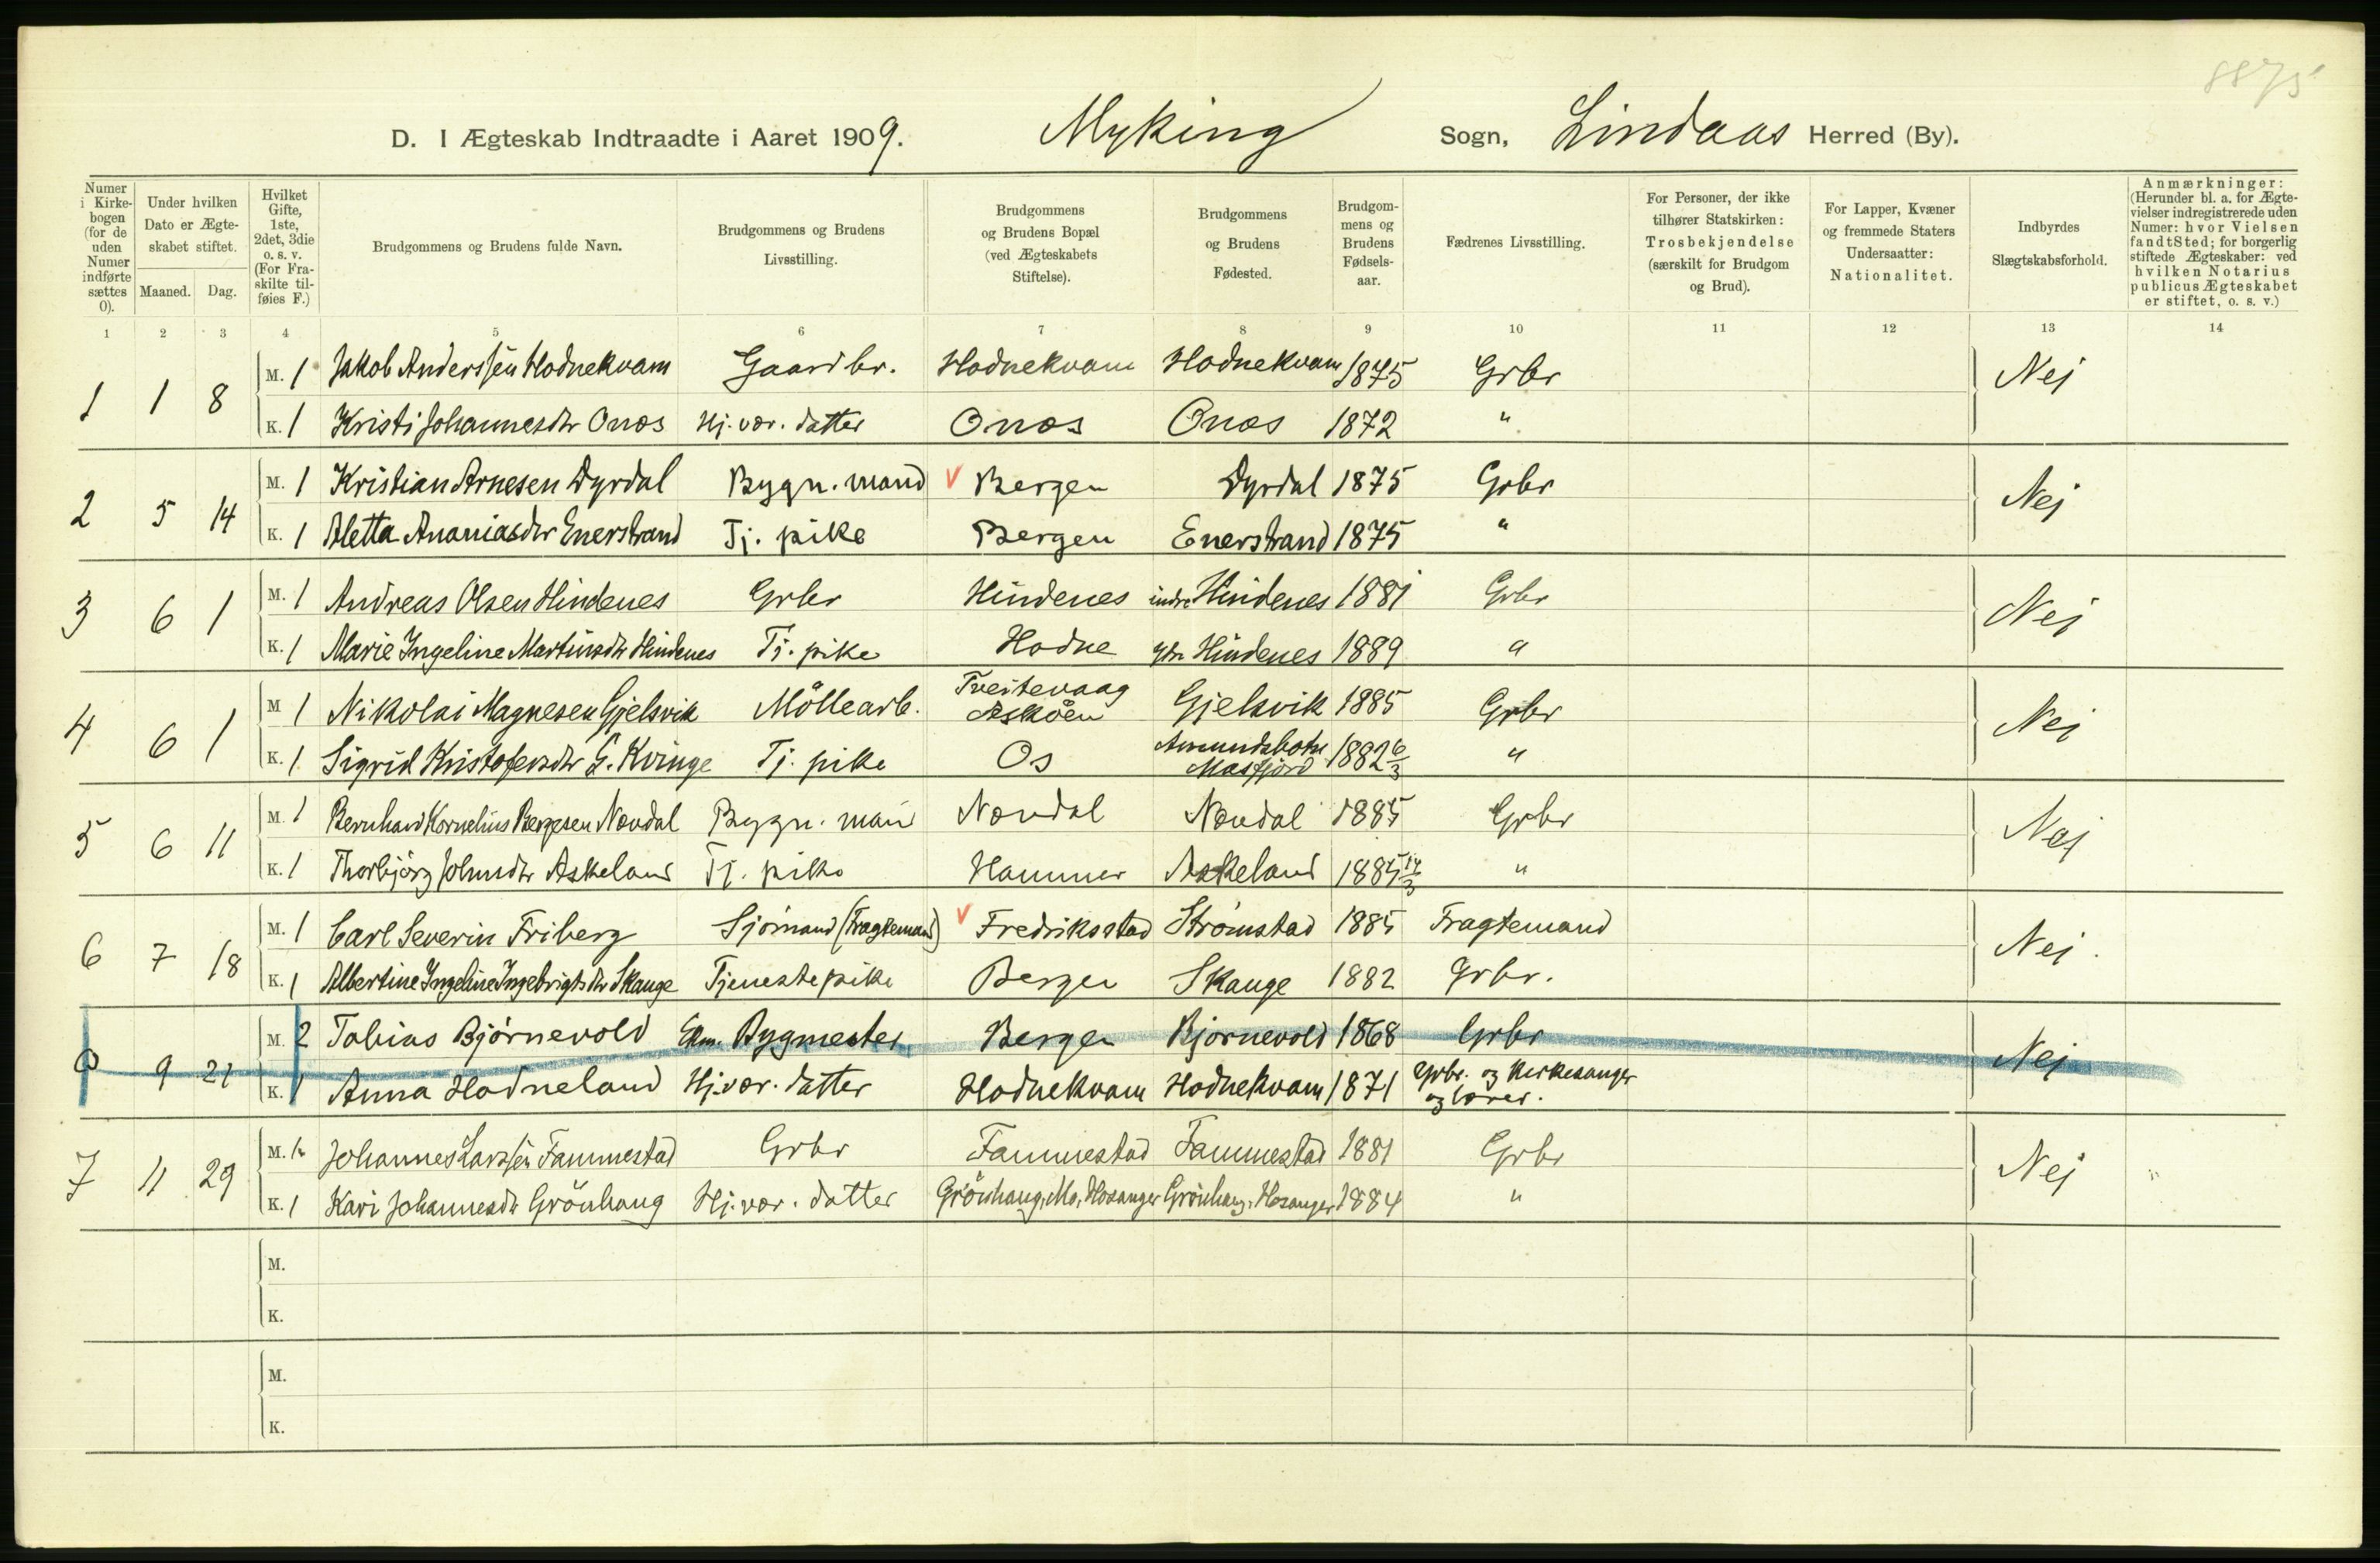 8875
D. I Ægteskab Indtraadte i Aaret 1909. Myking Sogn, Lindaas Herred (By).
Numer i Kirkebogen (for de uden Numer indførte sættes 0).
Under hvilken Dato er Ægteskabet stiftet.
Maaned. Dag.
Hvilket Gifte, 1ste, 2det, 3die o. s. v. (For Fraskilte tilføies F.)
Brudgommens og Brudens fulde Navn.
Brudgommens og Brudens Livsstilling.
Brudgommens og Brudens Bopæl (ved Ægteskabets Stiftelse).
Brudgommens og Brudens Fødested.
Brudgommens og Brudens Fødselsaar.
Fædrenes Livsstilling.
For Personer, der ikke tilhører Statskirken: Trosbekjendelse (særskilt for Brudgom og Brud).
For Lapper, Kvæner og fremmede Staters Undersaatter: Nationalitet.
Indbyrdes Slægtskabsforhold.
Anmærkninger: (Herunder bl. a. for Ægtevielser indregistrerede uden Numer: hvor Vielsen fandt Sted; for borgerlig stiftede Ægteskaber: ved hvilken Notarius publicus Ægteskabet er stiftet, o. s. v.)
1 2 3 4 5 6 7 8 9 10 11 12 13 14
1 1 8 M. 1 Jakob Anderssen Hodnekvam Gaardbr. Hodnekvam Hodnekvam 1875 Grbr Nej
K. 1 Kristi Johannesdtr Onøs Hj. vær. datter Onøs Onøs 1872 "
2 5 14 M. 1 Kristian Arnesen Dyrdal Bygn. mand V Bergen Dyrdal 1875 Grbr Nej
K. 1 Aletta Ananiasdtr Enerstrand Tj. pike Bergen Enerstrand 1875 "
3 6 1 M. 1 Andreas Olsen Hindenes Grbr Hindenes indre Hindenes 1881 Grbr Nej
K. 1 Marie Ingeline Martinsdtr Hindenes Tj. pike Hodne ytr. Hindenes 1889 "
4 6 1 M 1 Nikolai Magnesen Gjelsvik Möllearb. Tveitevaag Asköen Gjelsvik 1885 Grbr Nej
K. 1 Sigrid Kristofersdtr G. Kvinge Tj. pike Os Amundsbotn Masfjord 1882 6/3 "
5 6 11 M. 1 Bernhard Kornelius Bergesen Nøvdal Bygn. man Nøvdal Nøvdal 1885 Grbr Nej
K. 1 Thorbjörg Johnsdtr Askeland Tj. pike Hammer Askeland 1885 14/3 "
6 7 18 M. 1 Carl Severin Friberg Sjömand (Fragtemand) V Fredriksstad Strömstad 1885 Fragtemand Nej.
K. 1 Albertine Ingeline Ingebrigtsdtr Skauge Tjenestepike Bergen Skauge 1882 Grbr.
0 9 21 M. 2 Tobias Björnevold Ekm. Bygmester Bergen Bjørnevold 1868 Grbr Nej
K. 1 Anna Hodneland Hj. vær. datter Hodnekvam Hodnekvam 1871 Grbr. og Kirkesanger og lærer.
7 11 29 M. 1 Johannes Larssen Fammestad Grbr Fammestad Fammestad 1881 Grbr Nej "
K. 1 Kari Johannesdtr Grönhaug Hj. vær. datter Grönhaug, Mo, Hosanger Grönhaug, Hosanger 1884 "
M.
K.
M.
K.